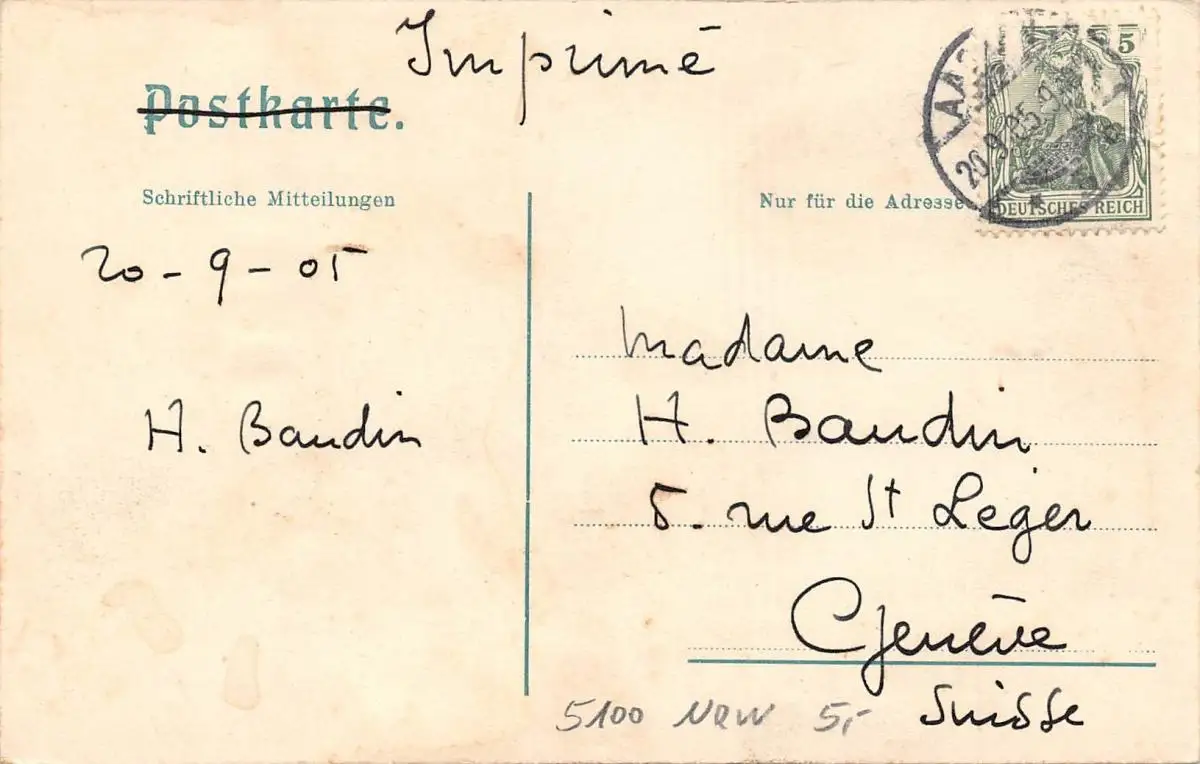 Imprimé
Postkarte.
5
20.9.05
DEUTSCHES REICH
Schriftliche Mitteilungen
Nur für die Adresse
20 - 9 - 05
H. Baudin
Madame
H. Baudin
5. rue St Leger
Genève
Suisse
5100 NRW 5,-